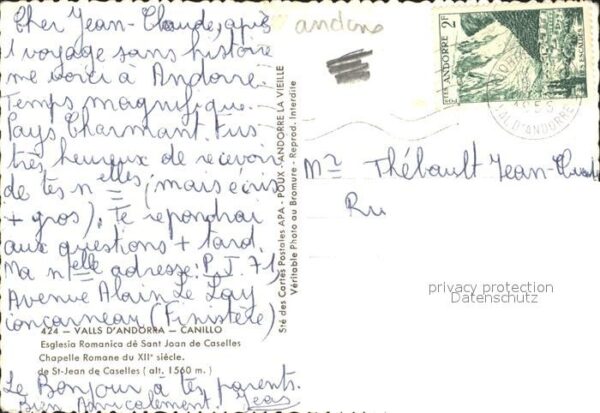 Cher Jean-Claude, après
1 voyage sans histoire
me voici à Andorre.
Temps magnifique.
Pays Charmant. Fus
très heureux de recevoir
de tes nelles (mais écris
+ gros). Te repondrai
aux questions + tard.
Ma nelle adresse: P.J. 71,
Avenue Alain Le Lay
Concarneau (Finistère)
424 — VALLS D'ANDORRA — CANILLO
Esglesia Romanica dé Sant Joan de Caselles
Chapelle Romane du XIIe siècle.
de St-Jean de Caselles ( alt. 1560 m. )
Le Bonjour à tes parents.
Bien Amicalement Jean
Sté des Cartes Postales APA - POUX - ANDORRE LA VIEILLE
Véritable Photo au Bromure - Reprod. Interdite
andeno
PTES ANDORRE 2F
LES ESCALDES
VAL D'ANDORRE
Mr Thébault Jean-Claude
Ru
privacy protection
Datenschutz